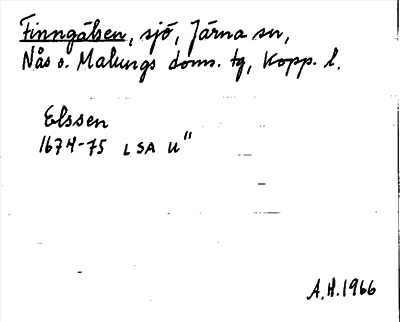 Finngälsen, sjö, Järna sn,
Nås o. Malungs doms. tg, Kopp. l.
Elssen
1674-75 LSA U"
A.H. 1966